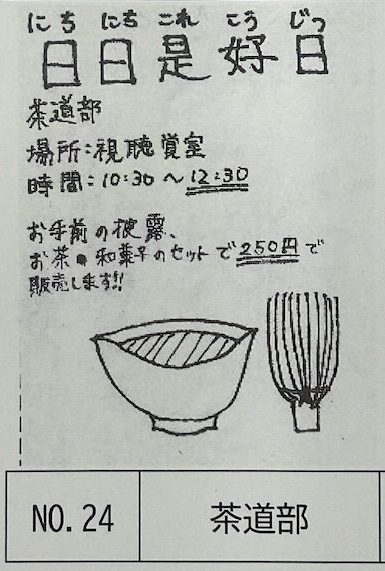 にち にち これ こう じつ
日日是好日
茶道部
場所:視聴覚室
時間:10:30～12:30
お手前の披露、
お茶・和菓子のセットで250円で
販売します!!
NO.24
茶道部